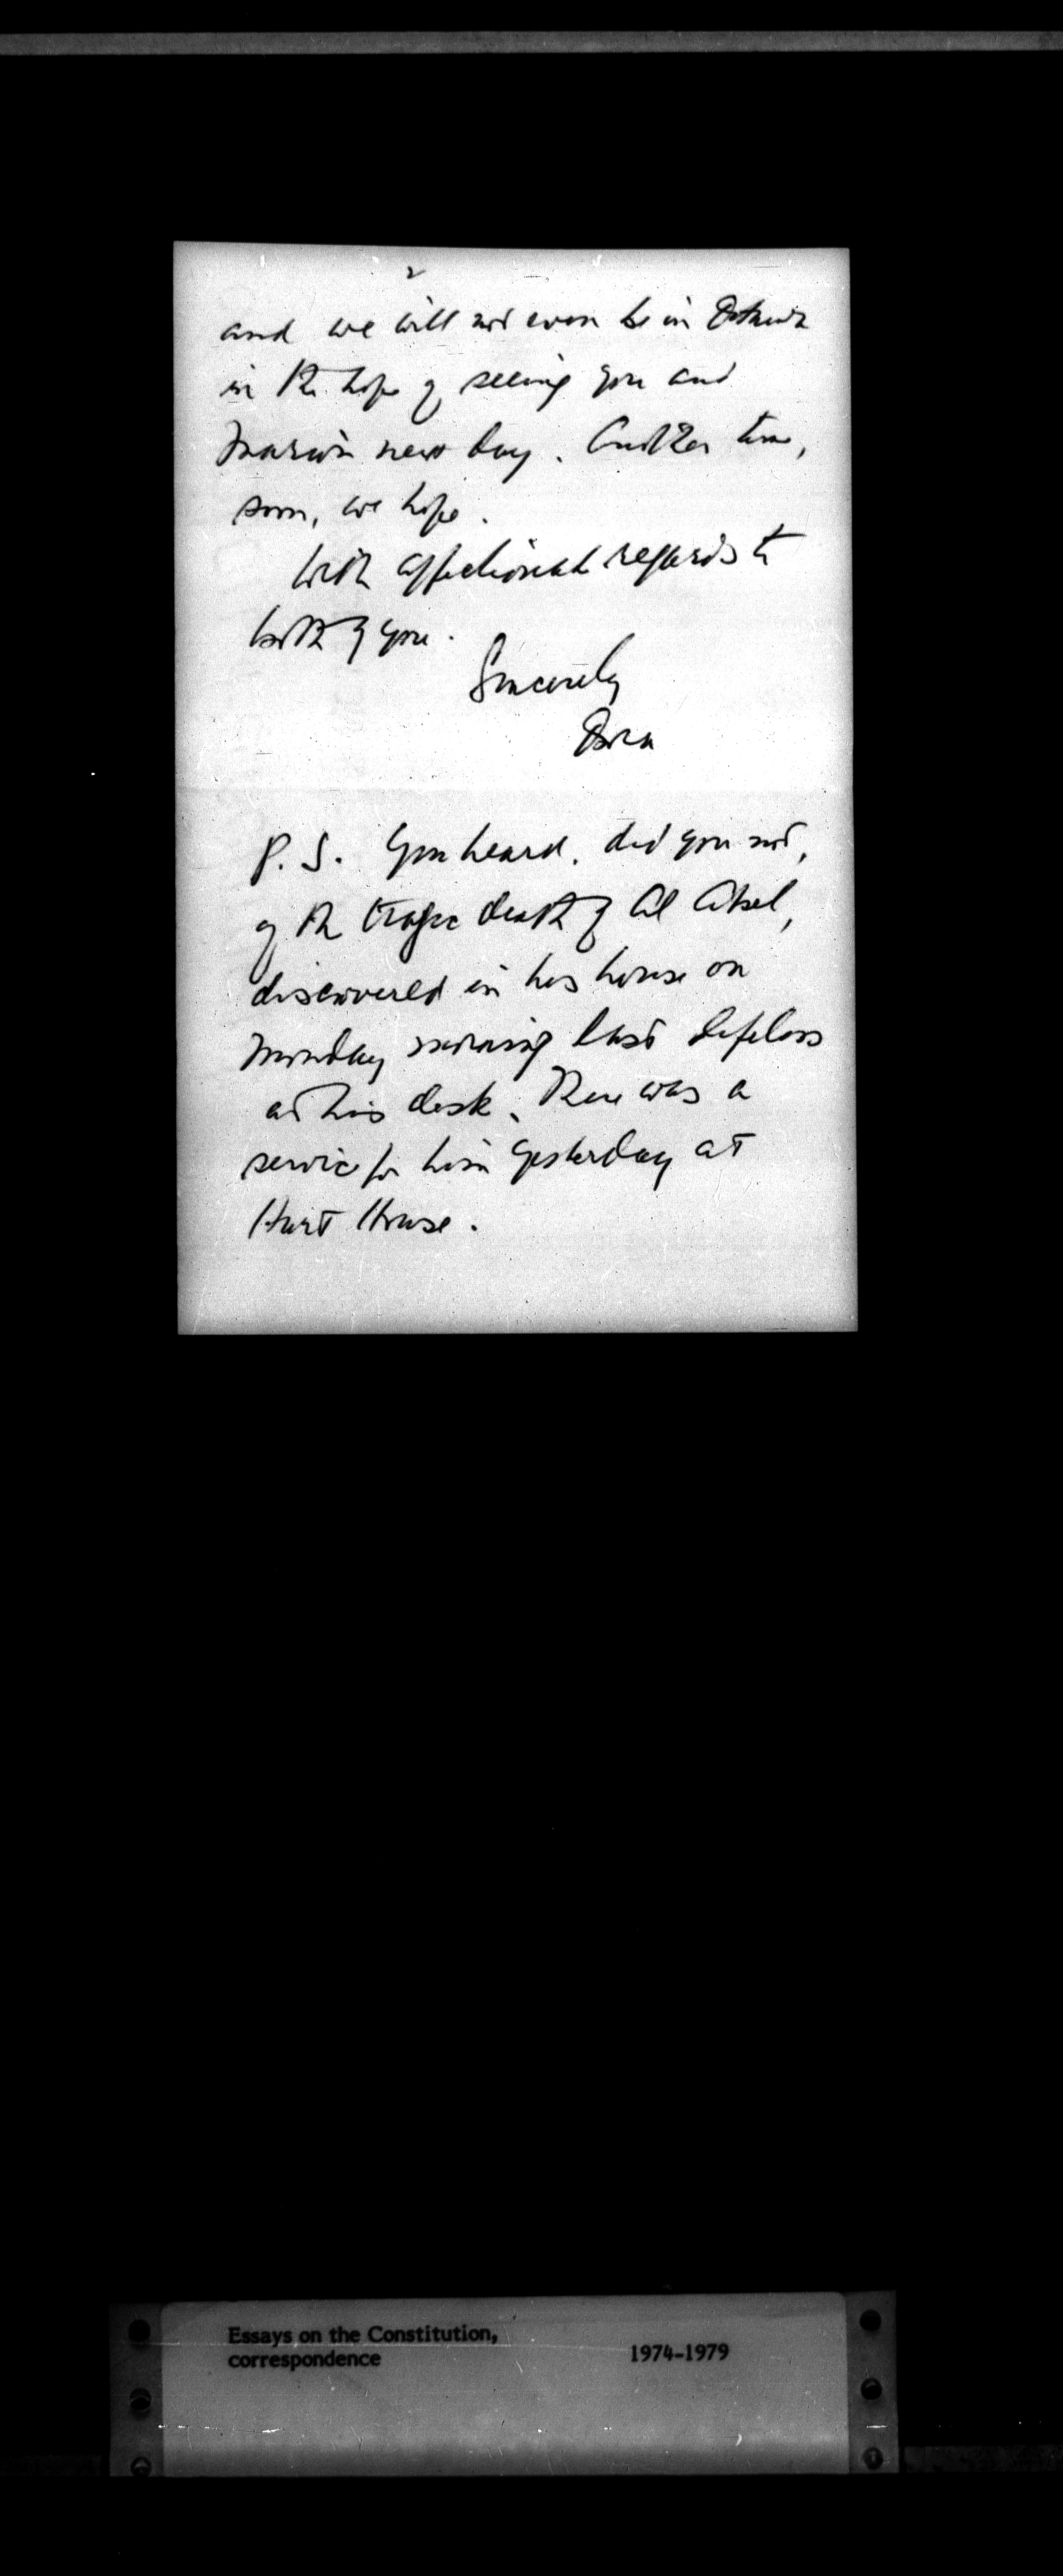 2
and we will not even be in Ottawa
in the hope of seeing you and
Marion next day. Another time,
soon, we hope.
With affectionate regards to
both of you.
Sincerely
P. S. You heard, did you not,
of the tragic death of Al Abel,
discovered in his house on
Monday morning last lifeless
at his desk. There was a
service for him yesterday at
Hart House.
Essays on the Constitution,
correspondence 1974-1979